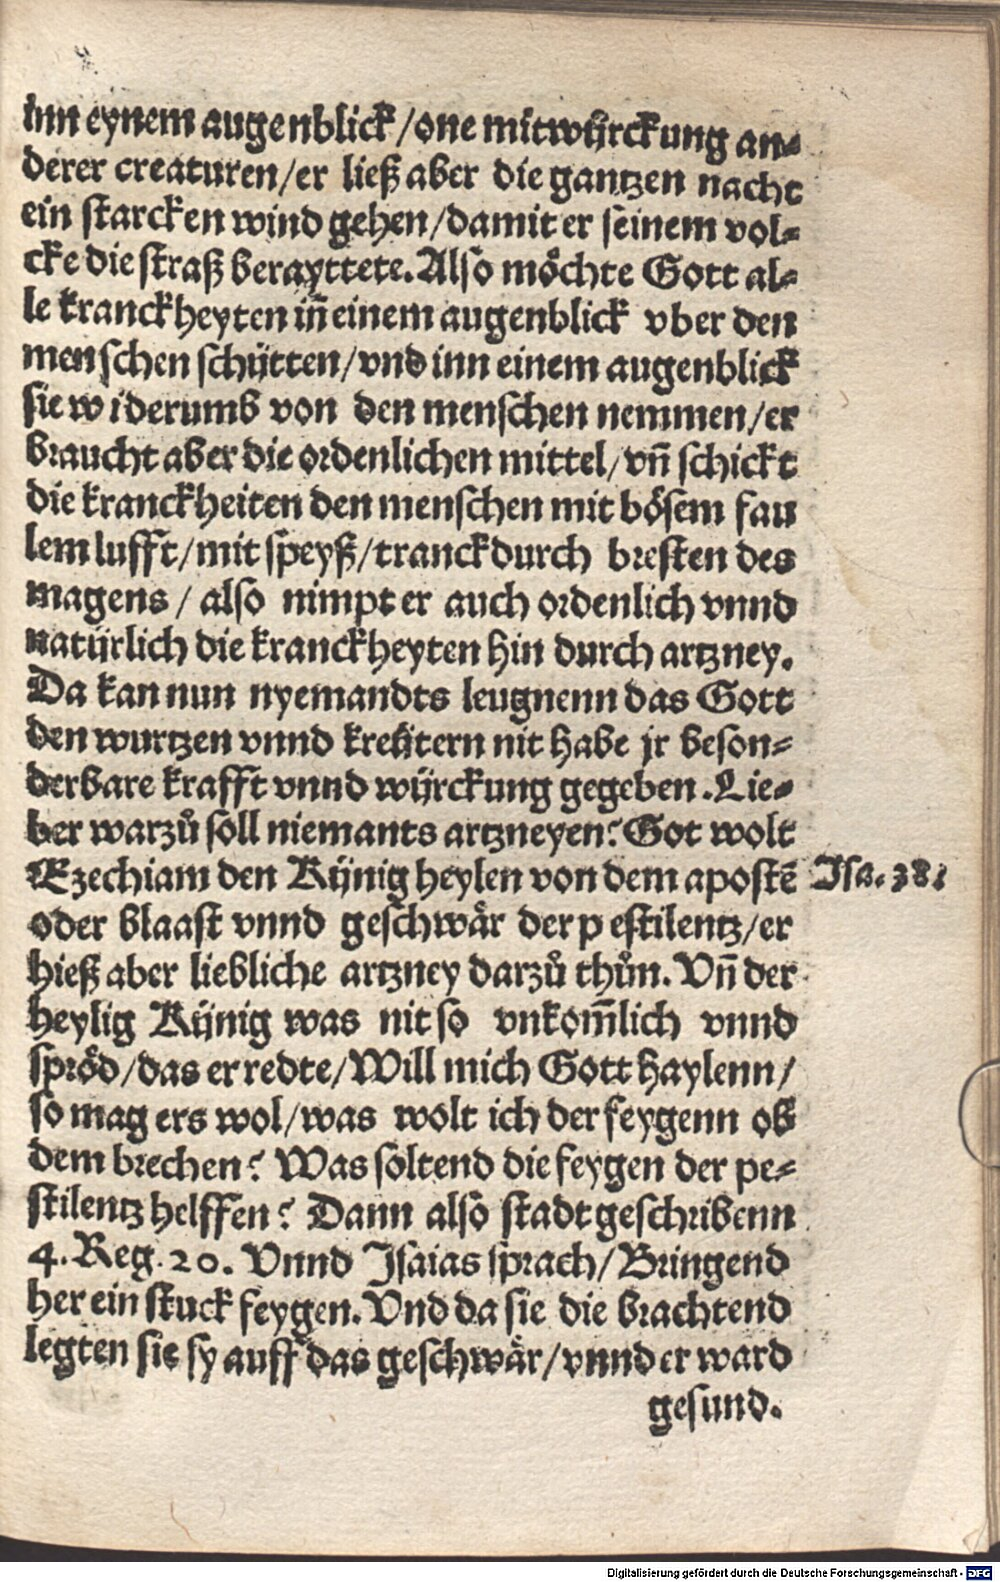 inn eynem augenblick/one mitwürckung an-
derer creaturen/er ließ aber die gantzen nacht
ein starcken wind gehen/damit er seinem vol-
cke die straß berayttete. Also möchte Gott al-
le kranckheyten iñ einem augenblick vber den
menschen schütten/vnd inn einem augenblick
sie widerumb von den menschen nemmen/er
braucht aber die ordenlichen mittel/vñ schickt
die kranckheiten den menschen mit bösem fau
lem lufft/mit speyß/tranck durch bresten des
magens/ also nimpt er auch ordenlich vnnd
natürlich die kranckheyten hin durch artzney.
Da kan nun nyemandts leugnenn das Gott
den wurtzen vnnd kreütern nit habe jr beson-
derbare krafft vnnd würckung gegeben. Lie-
ber warzů soll niemants artzneyen? Got wolt
Ezechiam den Künig heylen von dem apostē
Isa. 38.
oder blaast vnnd geschwär der pestilentz/er
hieß aber liebliche artzney darzů thůn. Vñ der
heylig Künig was nit so vnkom̃lich vnnd
spröd/das er redte/Will mich Gott haylenn/
so mag ers wol/was wolt ich der feygenn ob
dem brechen? Was soltend die feygen der pe-
stilentz helffen? Dann also stadt geschribenn
4. Reg. 20. Vnnd Isaias sprach/Bringend
her ein stuck feygen. Vnd da sie die brachtend
legten sie sy auff das geschwär/vnnd er ward
gesund.
Digitalisierung gefördert durch die Deutsche Forschungsgemeinschaft - DFG